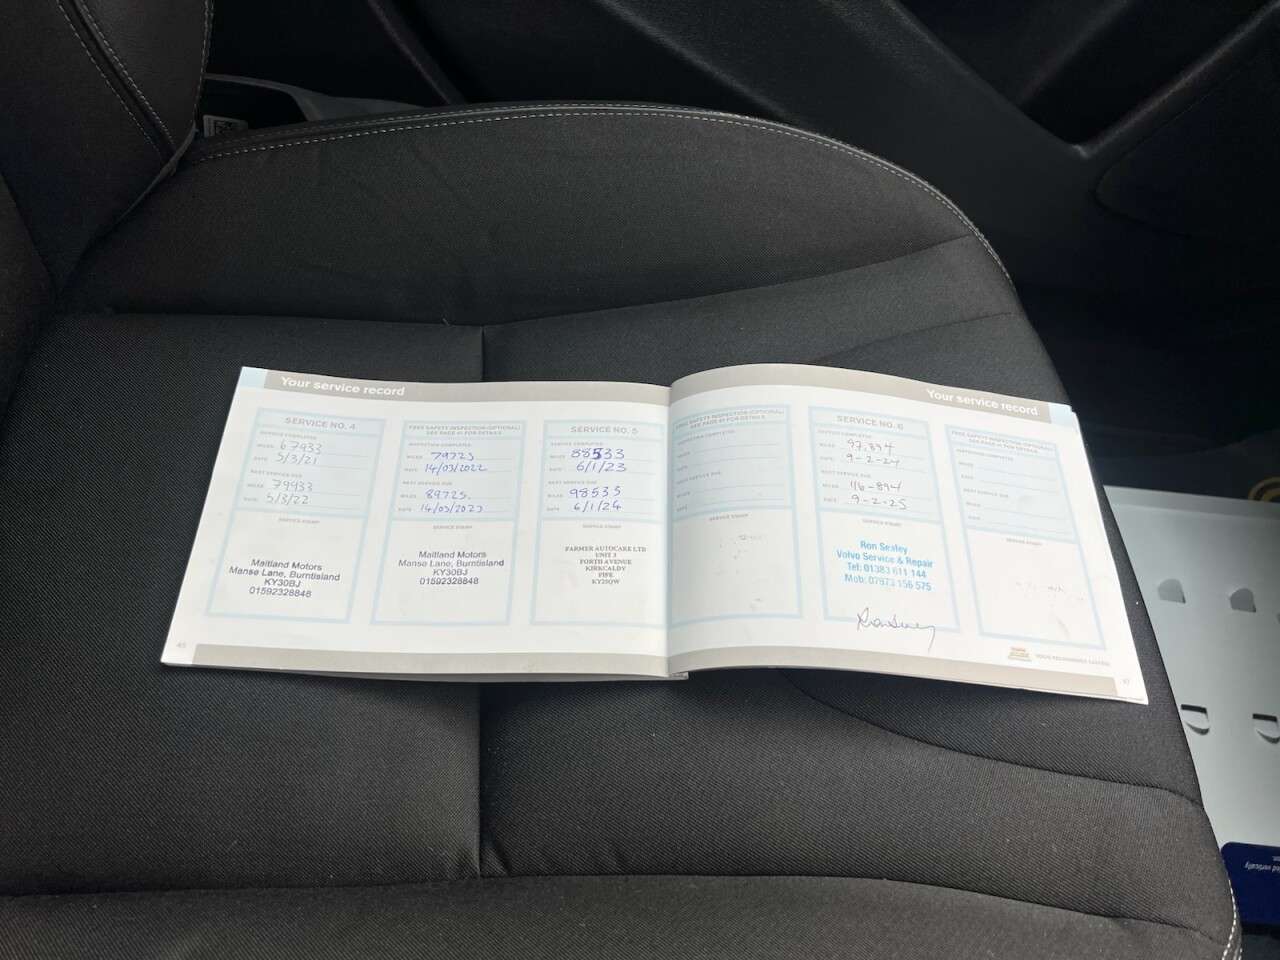 Your service record
SERVICE NO. 4
SERVICE COMPLETED
MILES 67933
DATE 5/3/21
NEXT SERVICE DUE
MILES 79933
DATE 5/3/22
SERVICE STAMP
Maitland Motors
Manse Lane, Burntisland
KY30BJ
01592328848
FREE SAFETY INSPECTION (OPTIONAL)
SEE PAGE 41 FOR DETAILS
INSPECTION COMPLETED
MILES 79725
DATE 14/03/2022
NEXT SERVICE DUE
MILES 89725.
DATE 14/03/2023
SERVICE STAMP
Maitland Motors
Manse Lane, Burntisland
KY30BJ
01592328848
SERVICE NO. 5
SERVICE COMPLETED
MILES 88533
DATE 6/1/23
NEXT SERVICE DUE
MILES 98533
DATE 6/1/24
SERVICE STAMP
FARMER AUTOCARE LTD
UNIT 3
FORTH AVENUE
KIRKCALDY
FIFE
KY25QW
45
Your service record
FREE SAFETY INSPECTION (OPTIONAL)
SEE PAGE 41 FOR DETAILS
INSPECTION COMPLETED
MILES
DATE
NEXT SERVICE DUE
MILES
DATE
SERVICE STAMP
SERVICE NO. 6
SERVICE COMPLETED
MILES 97,894
DATE 9-2-24
NEXT SERVICE DUE
MILES 116-894
DATE 9-2-25
SERVICE STAMP
Ron Sealey
Volvo Service & Repair
Tel: 01383 611 144
Mob: 07973 156 575
FREE SAFETY INSPECTION (OPTIONAL)
SEE PAGE 41 FOR DETAILS
INSPECTION COMPLETED
MILES
DATE
NEXT SERVICE DUE
MILES
DATE
SERVICE STAMP
vertically